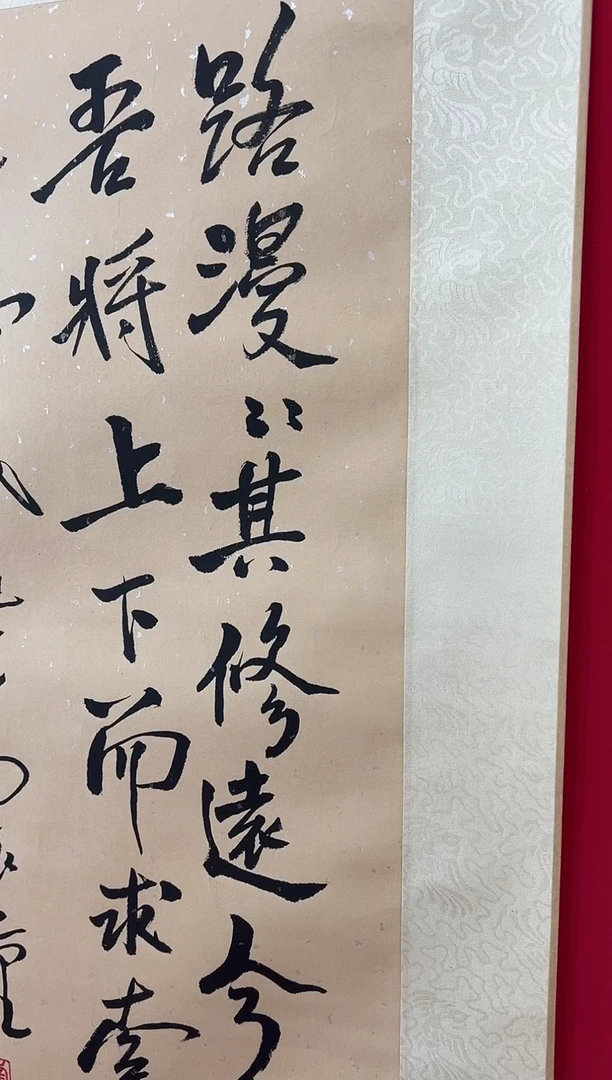 路漫〻其修遠兮
吾將上下而求索